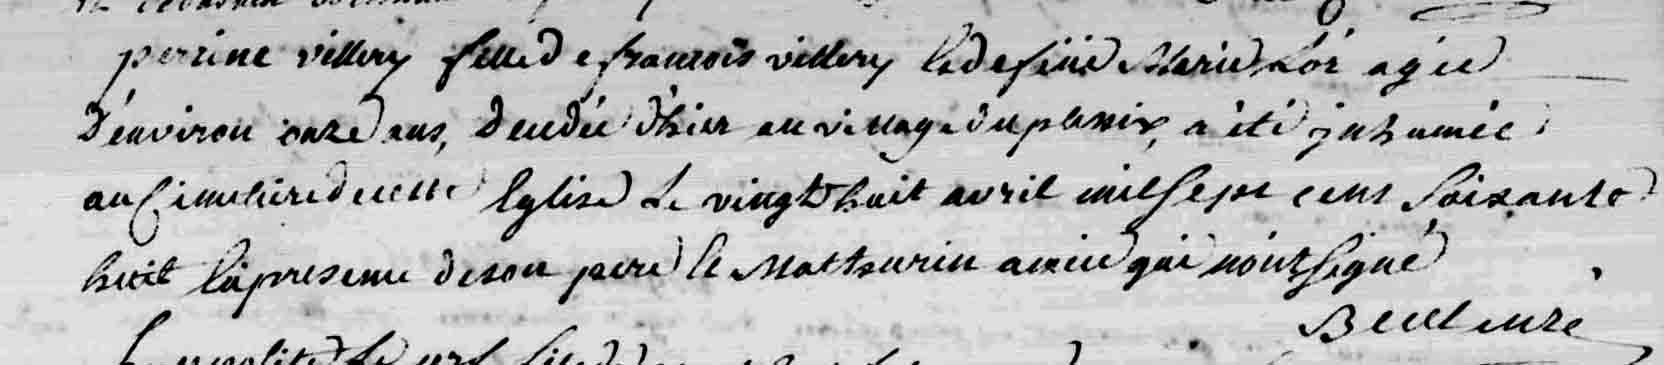 perrine villery fille de francois villery & de feüe Marie Lor agée
d'environ onze ans, decedée d'hier au village du plessix, a été inhumée
au Cimetiere de cette Eglise Le vingt huit avril mil sept cent soixante
huit En presence de son pere & Mathurin qui n'ont signé